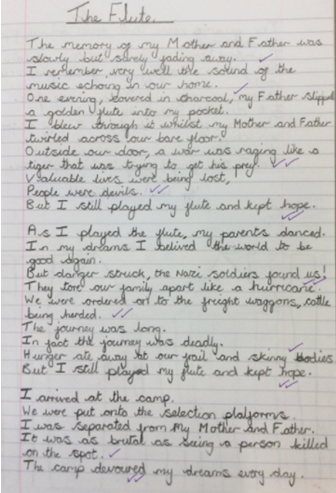 The Flute.
The memory of my Mother and Father was
slowly but surely fading away.
I remember very well the sound of the
music echoing in our home.
One evening, covered in charcoal, my Father slipped
a golden flute into my pocket.
I blew through it whilst my Mother and Father
twirled across our bare floor.
Outside our door, a war was raging like a
tiger that was trying to get his prey.
Valuable lives were being lost,
People were devils.
But I still played my flute and kept hope.
As I played the flute, my parents danced.
In my dreams I belived the world to be
good again.
But danger struck, the Nazi soldiers found us!
They tore our family apart like a hurricane.
We were ordered on to the freight waggons, cattle
being herded.
The journey was long.
In fact the journey was deadly.
Hunger ate away at our frail and skinny bodies
But I still played my flute and kept hope.
I arrived at the camp.
We were put onto the selection plaforms.
I was separated from My Mother and Father.
It was as brutal as being a person killed
on the spot.
The camp devoured my dreams every day.